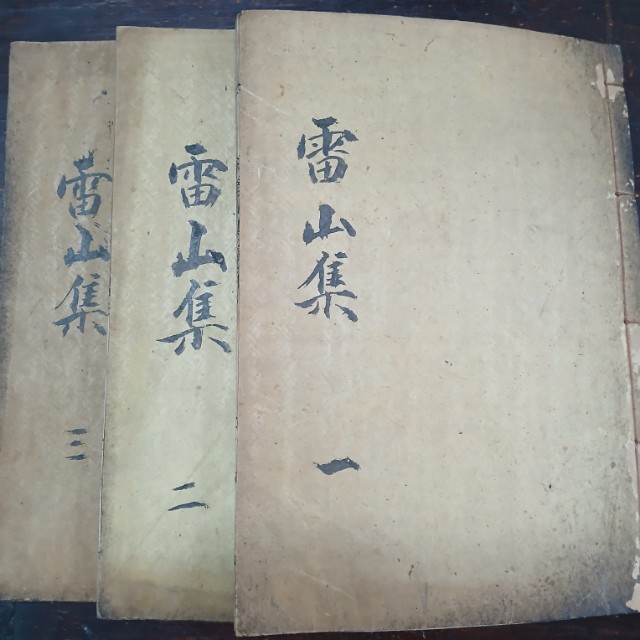 雷山集 一
雷山集 二
雷山集 三